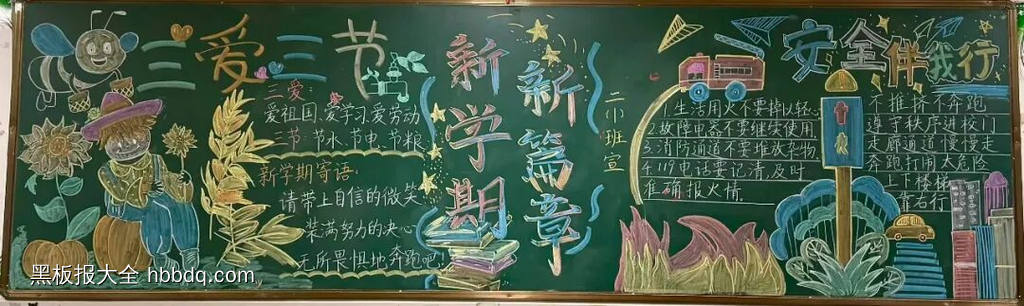 三爱三节
三爱:
爱祖国、爱学习、爱劳动
三节:节水、节电、节粮
新学期寄语:
请带上自信的微笑
装满努力的决心
无所畏惧地奔跑吧!
新学期
新篇章
二(1)班宣
安全伴我行
1.生活用火不要掉以轻心
2.故障电器不要继续使用
3.消防通道不要堆放杂物
4.119电话要记清,及时
准确报火情。
不推挤不奔跑
遵守秩序进校门
走廊通道慢慢走
奔跑打闹太危险
上下楼梯
靠右行
黑板报大全 hbbdq.com